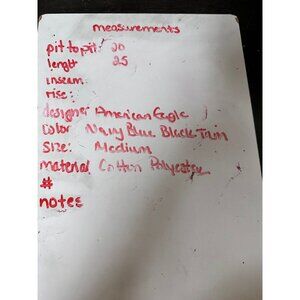 measurements
pit to pit: 20
length 25
inseam:
rise:
designer American Eagle
Color Navy Blue Black Trim
Size: Medium
material Cotton Polyester
#
notes